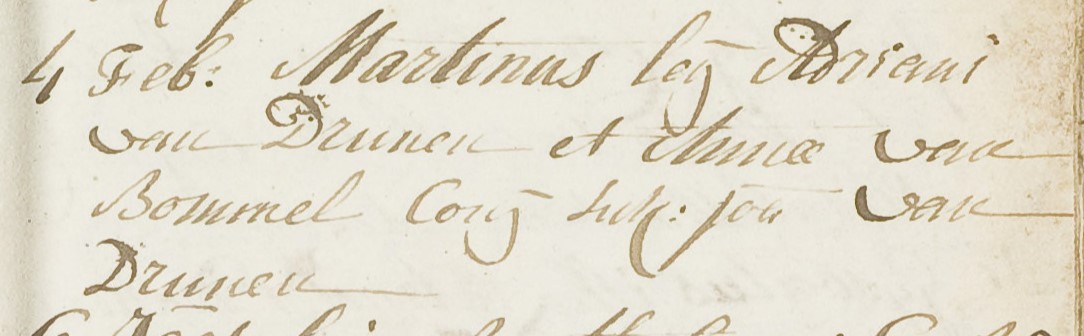 4 Feb: Martinus leg Adriani
van Drunen et Annae van
Bommel Conj Sus: joa van
Drunen